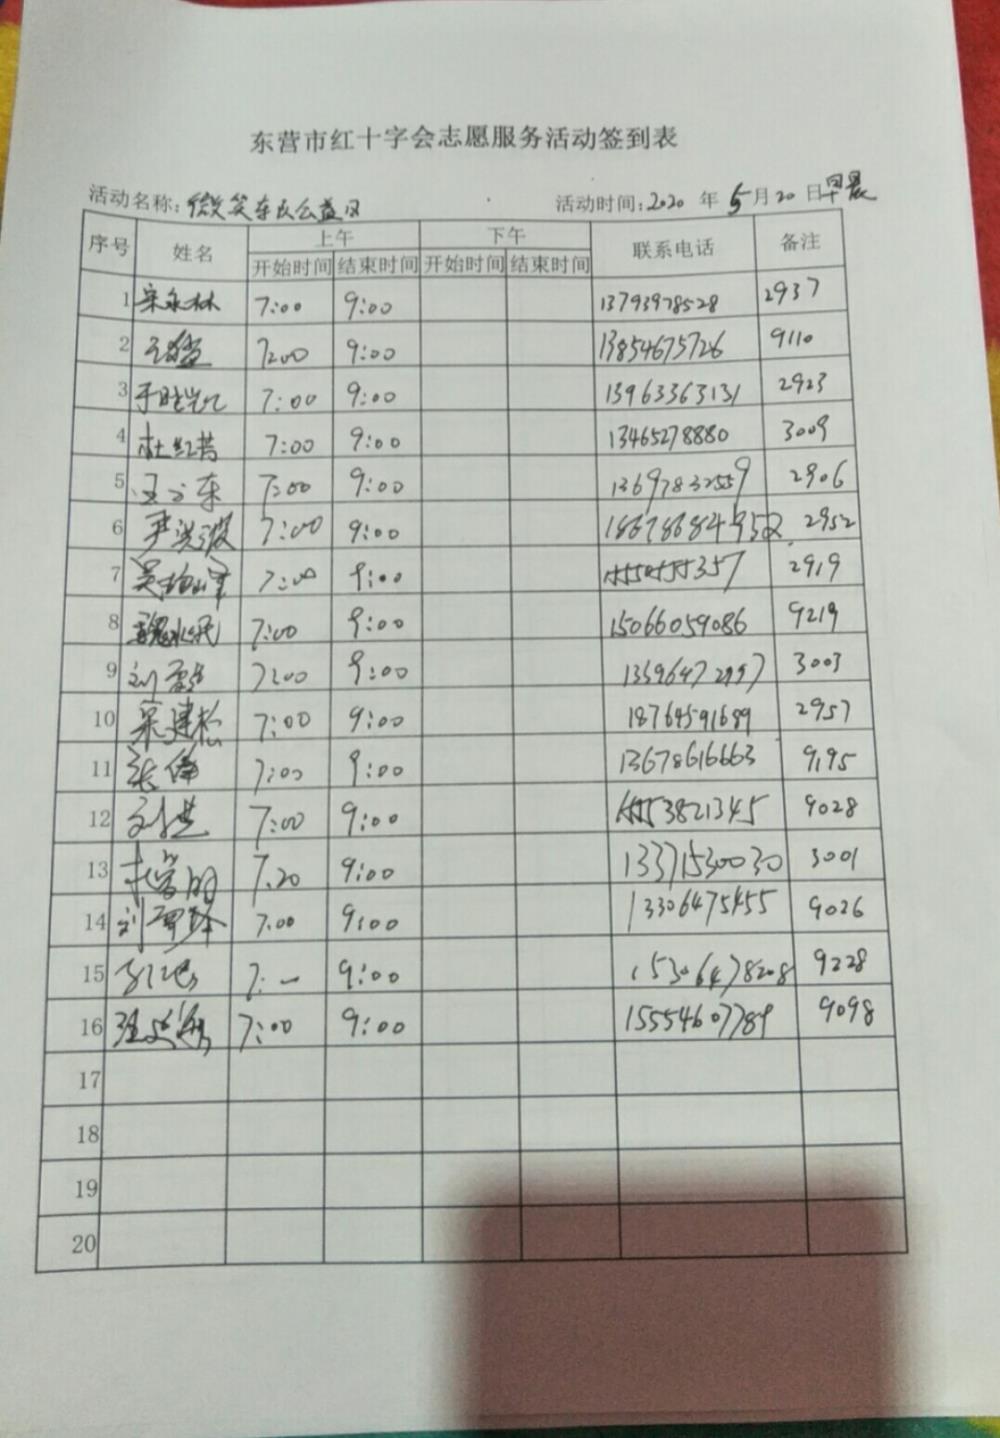 东营市红十字会志愿服务活动签到表
活动名称: 微笑车队公益 活动时间:2020 年 5月20 日早晨
序号 姓名 上午 下午 联系电话 备注
开始时间 结束时间 开始时间 结束时间
1 宋永林 7:00 9:00 13793978528 2937
2 7:00 9:00 13854675726 9110
3 7:00 9:00 13963363131 2923
4 杜红 7:00 9:00 13465278880 3009
5 7:00 9:00 2906
6 尹洪波 7:00 9:00 18678684952 2952
7 7:00 9:00 2919
8 魏永 7:00 9:00 15066059086 9219
9 刘 7:00 9:00 3003
10 宋建松 7:00 9:00 18764591689 2957
11 张伟 7:00 9:00 13678616663 9195
12 刘 7:00 9:00 15553821345 9028
13 7.20 9:00 13371530030 3001
14 刘 7:00 9:00 13306475455 9026
15 7: 9:00 15306478208 9228
16 7:00 9:00 15554607789 9098
17
18
19
20